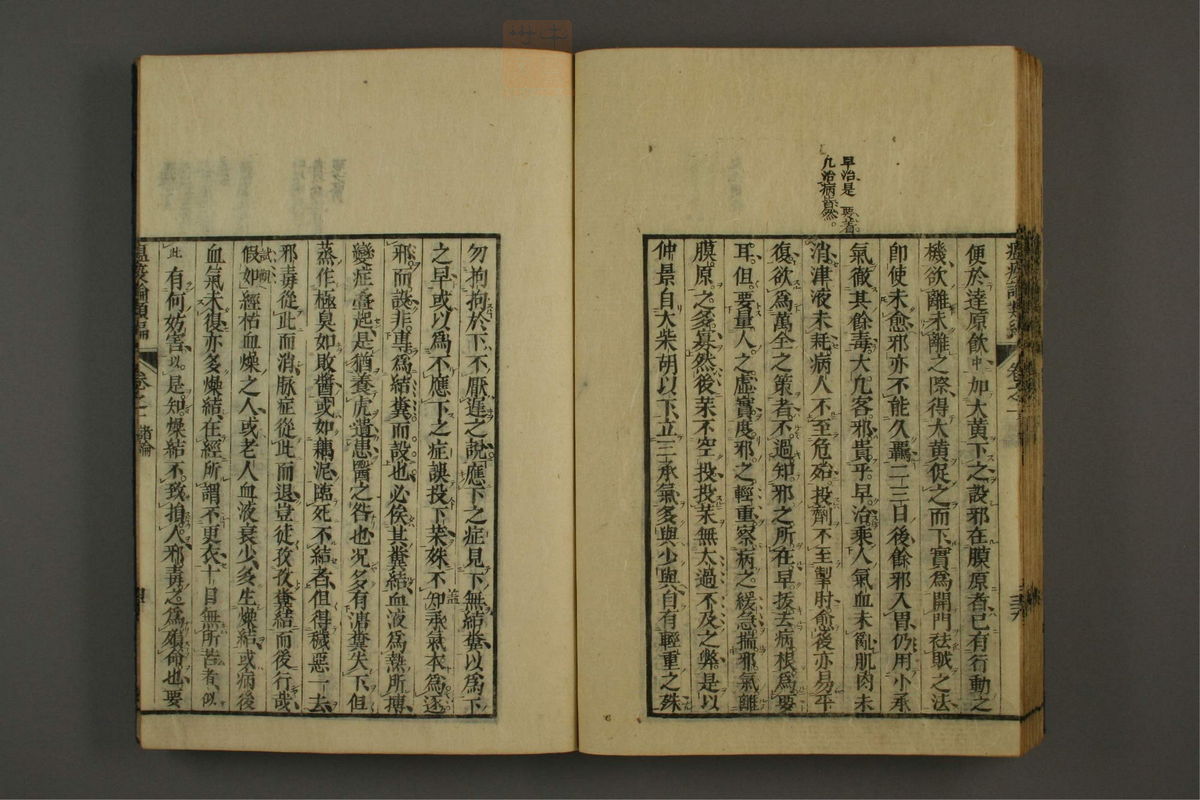 早治是要着
凡治病皆然。
便於達原飲中加大黃下之設邪在膜原者已有行動之
機欲離未離之際得大黃促之而下實爲開門祛賊之法
卽使未愈邪亦不能久羈二三日後餘邪入胃仍用小承
氣徹其餘毒大凡客邪貴乎早治乘人氣血未亂肌肉未
消津液未耗病人不至危殆投劑不至掣肘愈後亦易平
復欲爲萬全之策者不過知邪之所在早拔去病根爲要
耳但要量人之虛實度邪之輕重察病之緩急揣邪氣離
膜原之多寡然後藥不空投投藥無太過不及之弊是以
仲景自大柴胡以下立三承氣多與少與自有輕重之殊
勿拘拘於下不厭遲之說應下之症見下無結糞以爲下
之早或以爲不應下之症誤投下藥殊不知承氣本爲逐
邪而設非專爲結糞而設也必俟其糞結血液爲熱所搏
變症疊起是猶養虎遺患醫之咎也况多有溏糞失下但
蒸作極臭如敗醬或如藕泥臨死不結者但得穢惡一去
邪毒從此而消脉症從此而退豈徒孜孜糞結而後行哉
試觀
假如經枯血燥之人或老人血液衰少多生燥結或病後
血氣未復亦多燥結在經所謂不更衣十日無所苦者似
此有何妨害以是知燥結不致損人邪毒之爲殞命也要
溫疫論類編 卷之一 諸論